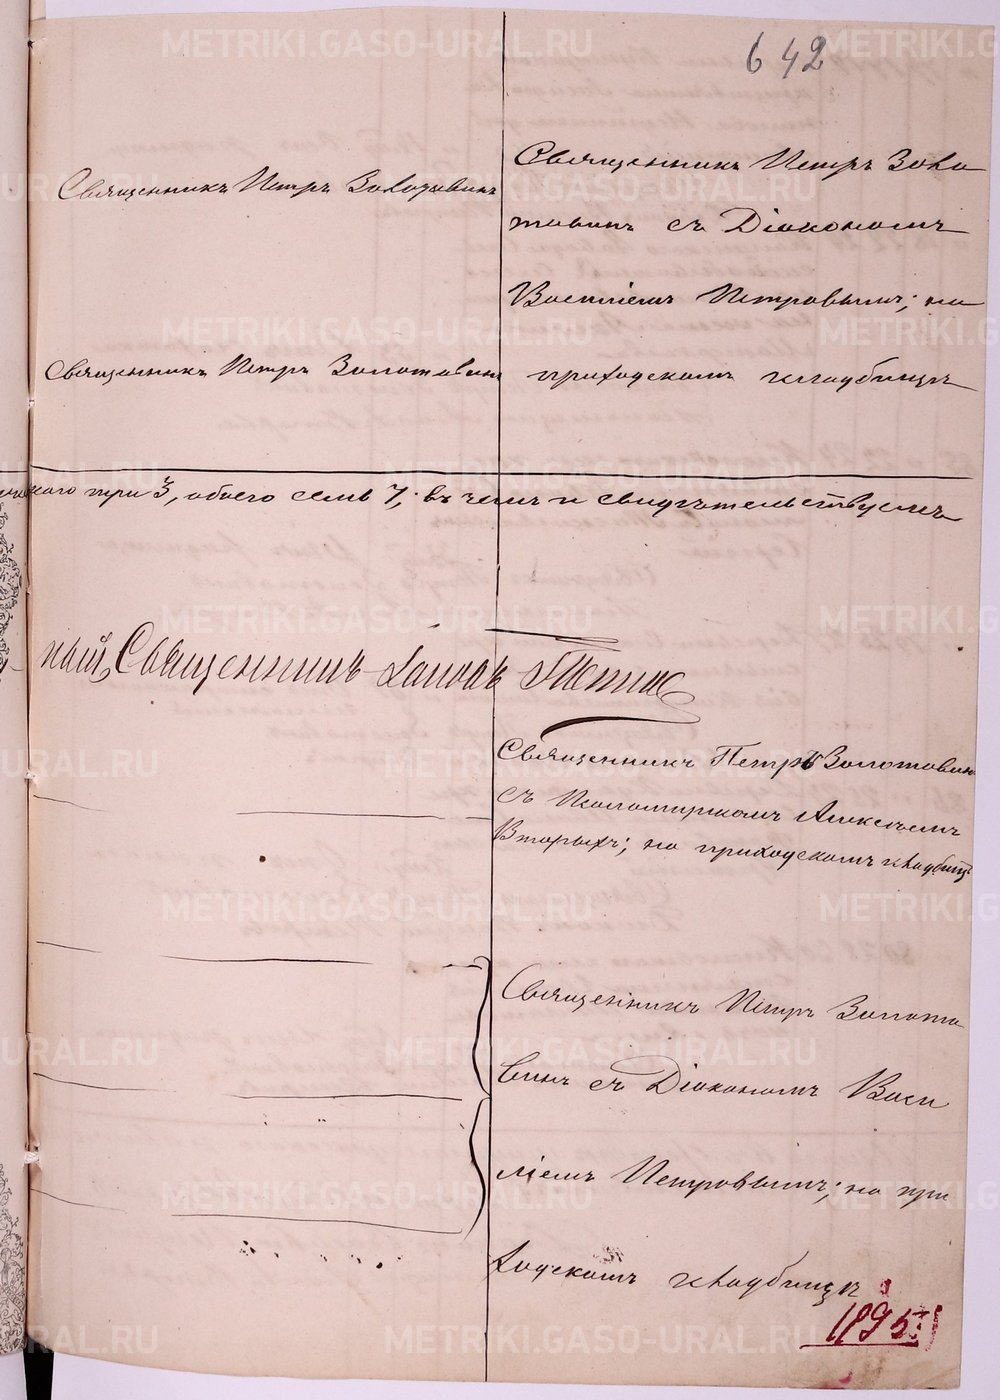 642
Священникъ Петръ Золотавинъ
Священникъ Петръ Золо
тавинъ съ Діакономъ
Василіемъ Петровымъ; на
Священникъ Петръ Золотавинъ
приходскомъ кладбищѣ
три 3, обоего семь 7; въ чемъ и свидѣтельствуемъ
Священникъ Іаковъ
Священникъ Петръ Золотавинъ
съ Псаломщикомъ Алексѣемъ
Вторыхъ; на приходскомъ кладбищѣ
Священникъ Петръ Золота
винъ съ Діакономъ Васи
ліемъ Петровымъ; на при
ходскомъ кладбищѣ
1895
METRIKI.GASO-URAL.RU